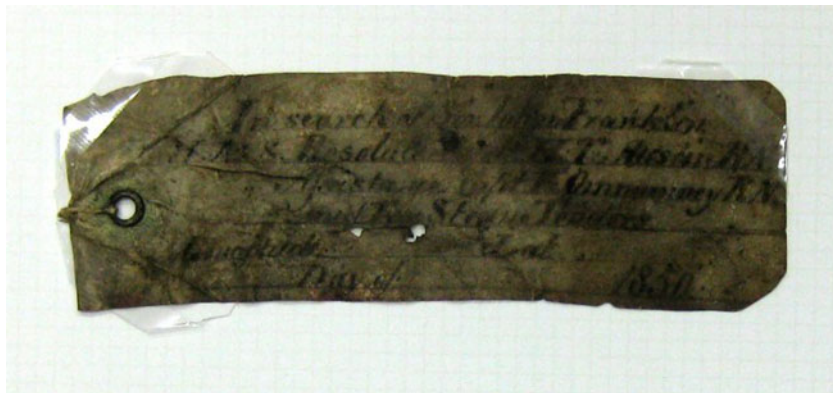 In search of Sir John Franklin
H.M.S. Resolute H.T. Austin R.N.
Assistance Capt. E. Ommanney R.N.
and Two Steam Tenders
Longitude Lat
Day of 1850